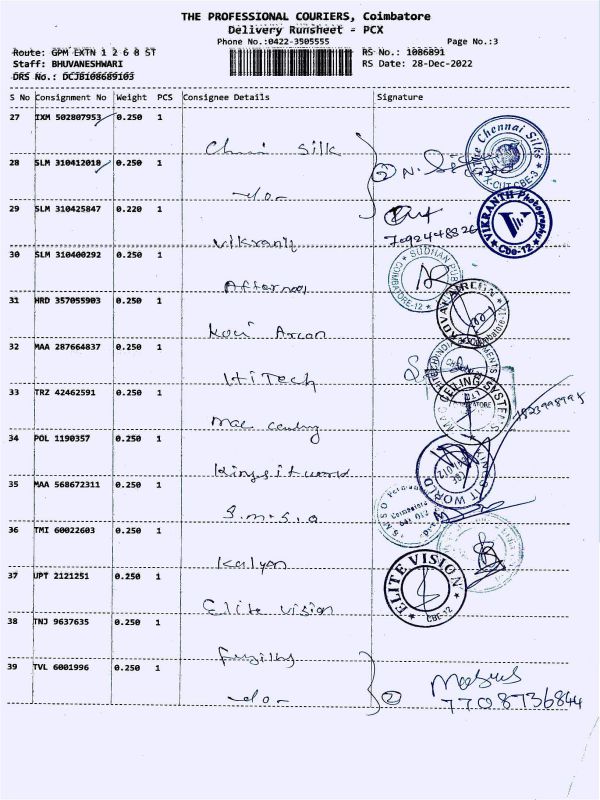 THE PROFESSIONAL COURIERS, Coimbatore
Delivery Runsheet - PCX
Phone No.:0422-3505555 Page No.:3
Route: GPM EXTN 1 2 6 8 ST RS No.: 1086891
Staff: BHUVANESHWARI RS Date: 28-Dec-2022
DRS No.: DCJS108669103
S No Consignment No Weight PCS Consignee Details Signature
27 IXM 502807953 0.250 1
Chennai Silk The Chennai Silks X-CUT CBE-3
28 SLM 310412018 0.250 1
-do- 2
29 SLM 310425847 0.220 1
Vikranth 7092448826 VIKRANTH Photography Cbe-12
30 SLM 310400292 0.250 1
SUDHAN COIMBATORE-12
31 HRD 357055903 0.250 1
Kovai Aircon KOVAI AIRCON Coimbatore-12
32 MAA 287664837 0.250 1
HiTech
33 TRZ 42462591 0.250 1
Mac MAC CEILING SYSTEMS
34 POL 1190357 0.250 1
Kings it world KINGS IT WORLD CBE
35 MAA 568672311 0.250 1
S.M.S.O S M S O Coimbatore
36 TMI 60022603 0.250 1
Kalyan
37 UPT 2121251 0.250 1
Elite Vision ELITE VISION CBE-12
38 TNJ 9637635 0.250 1
39 TVL 6001996 0.250 1
-do- 2 7708736844